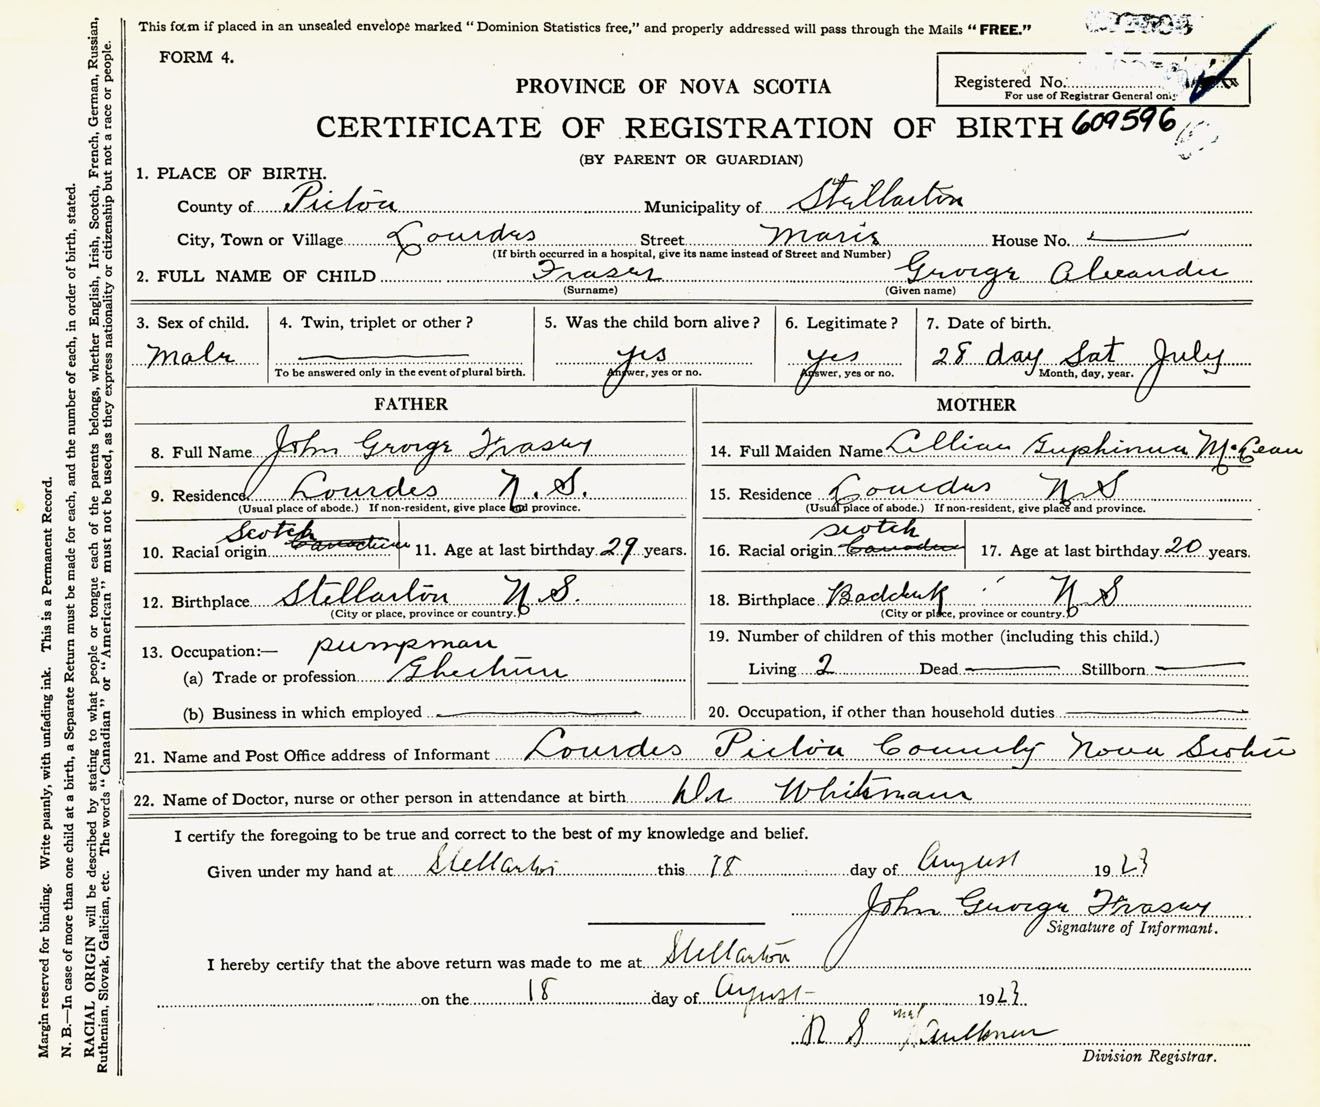 This form if placed in an unsealed envelope marked "Dominion Statistics free," and properly addressed will pass through the Mails "FREE."
FORM 4.
PROVINCE OF NOVA SCOTIA
Registered No.
For use of Registrar General only
CERTIFICATE OF REGISTRATION OF BIRTH 609596
(BY PARENT OR GUARDIAN)
1. PLACE OF BIRTH.
County of Pictou Municipality of Stellarton
City, Town or Village Lourdes Street Maris House No. —
(If birth occurred in a hospital, give its name instead of Street and Number)
2. FULL NAME OF CHILD Fraser George Alexander
(Surname) (Given name)
3. Sex of child. 4. Twin, triplet or other? 5. Was the child born alive? 6. Legitimate? 7. Date of birth.
Male — yes yes 28 day Sat July
To be answered only in the event of plural birth. Answer, yes or no. Answer, yes or no. Month, day, year.
FATHER MOTHER
8. Full Name John George Fraser 14. Full Maiden Name Lillian
9. Residence Lourdes N.S. 15. Residence Lourdes N S
(Usual place of abode.) If non-resident, give place and province. (Usual place of abode.) If non-resident, give place and province.
Scotch scotch
10. Racial origin Canadian 11. Age at last birthday 29 years. 16. Racial origin Canadian 17. Age at last birthday 20 years.
12. Birthplace Stellarton N.S. 18. Birthplace Baddeck N S
(City or place, province or country.) (City or place, province or country.)
19. Number of children of this mother (including this child.)
13. Occupation:— pumpman
Living 2 Dead — Stillborn —
(a) Trade or profession
(b) Business in which employed — 20. Occupation, if other than household duties —
21. Name and Post Office address of Informant Lourdes Pictou County Nova Scotia
22. Name of Doctor, nurse or other person in attendance at birth Dr Whitman
I certify the foregoing to be true and correct to the best of my knowledge and belief.
Given under my hand at Stellarton this 18 day of August 1923
John George Fraser
Signature of Informant.
I hereby certify that the above return was made to me at Stellarton
on the 18 day of August 1923
Division Registrar.
Margin reserved for binding. Write plainly, with unfading ink. This is a Permanent Record.
N. B.—In case of more than one child at a birth, a Separate Return must be made for each, and the number of each, in order of birth, stated.
RACIAL ORIGIN will be described by stating to what people or tongue each of the parents belongs, whether English, Irish, Scotch, French, German, Russian,
Ruthenian, Slovak, Galician, etc. The words "Canadian" or "American" must not be used, as they express nationality or citizenship but not a race or people.